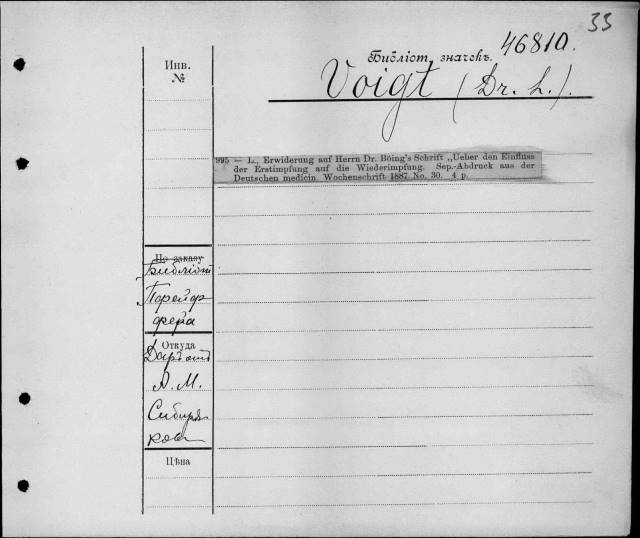 33
Библіот. значекъ. 46810.
Voigt (Dr. L.).
Инв.
№
995 — L., Erwiderung auf Herrn Dr. Böing's Schrift „Ueber den Einfluss
der Erstimpfung auf die Wiederimpfung. Sep.-Abdruck aus der
Deutschen medicin. Wochenschrift 1887 No. 30. 4 p.
По заказу
Библіот
Откуда
А. М.
Сибиря
кова
Цѣна